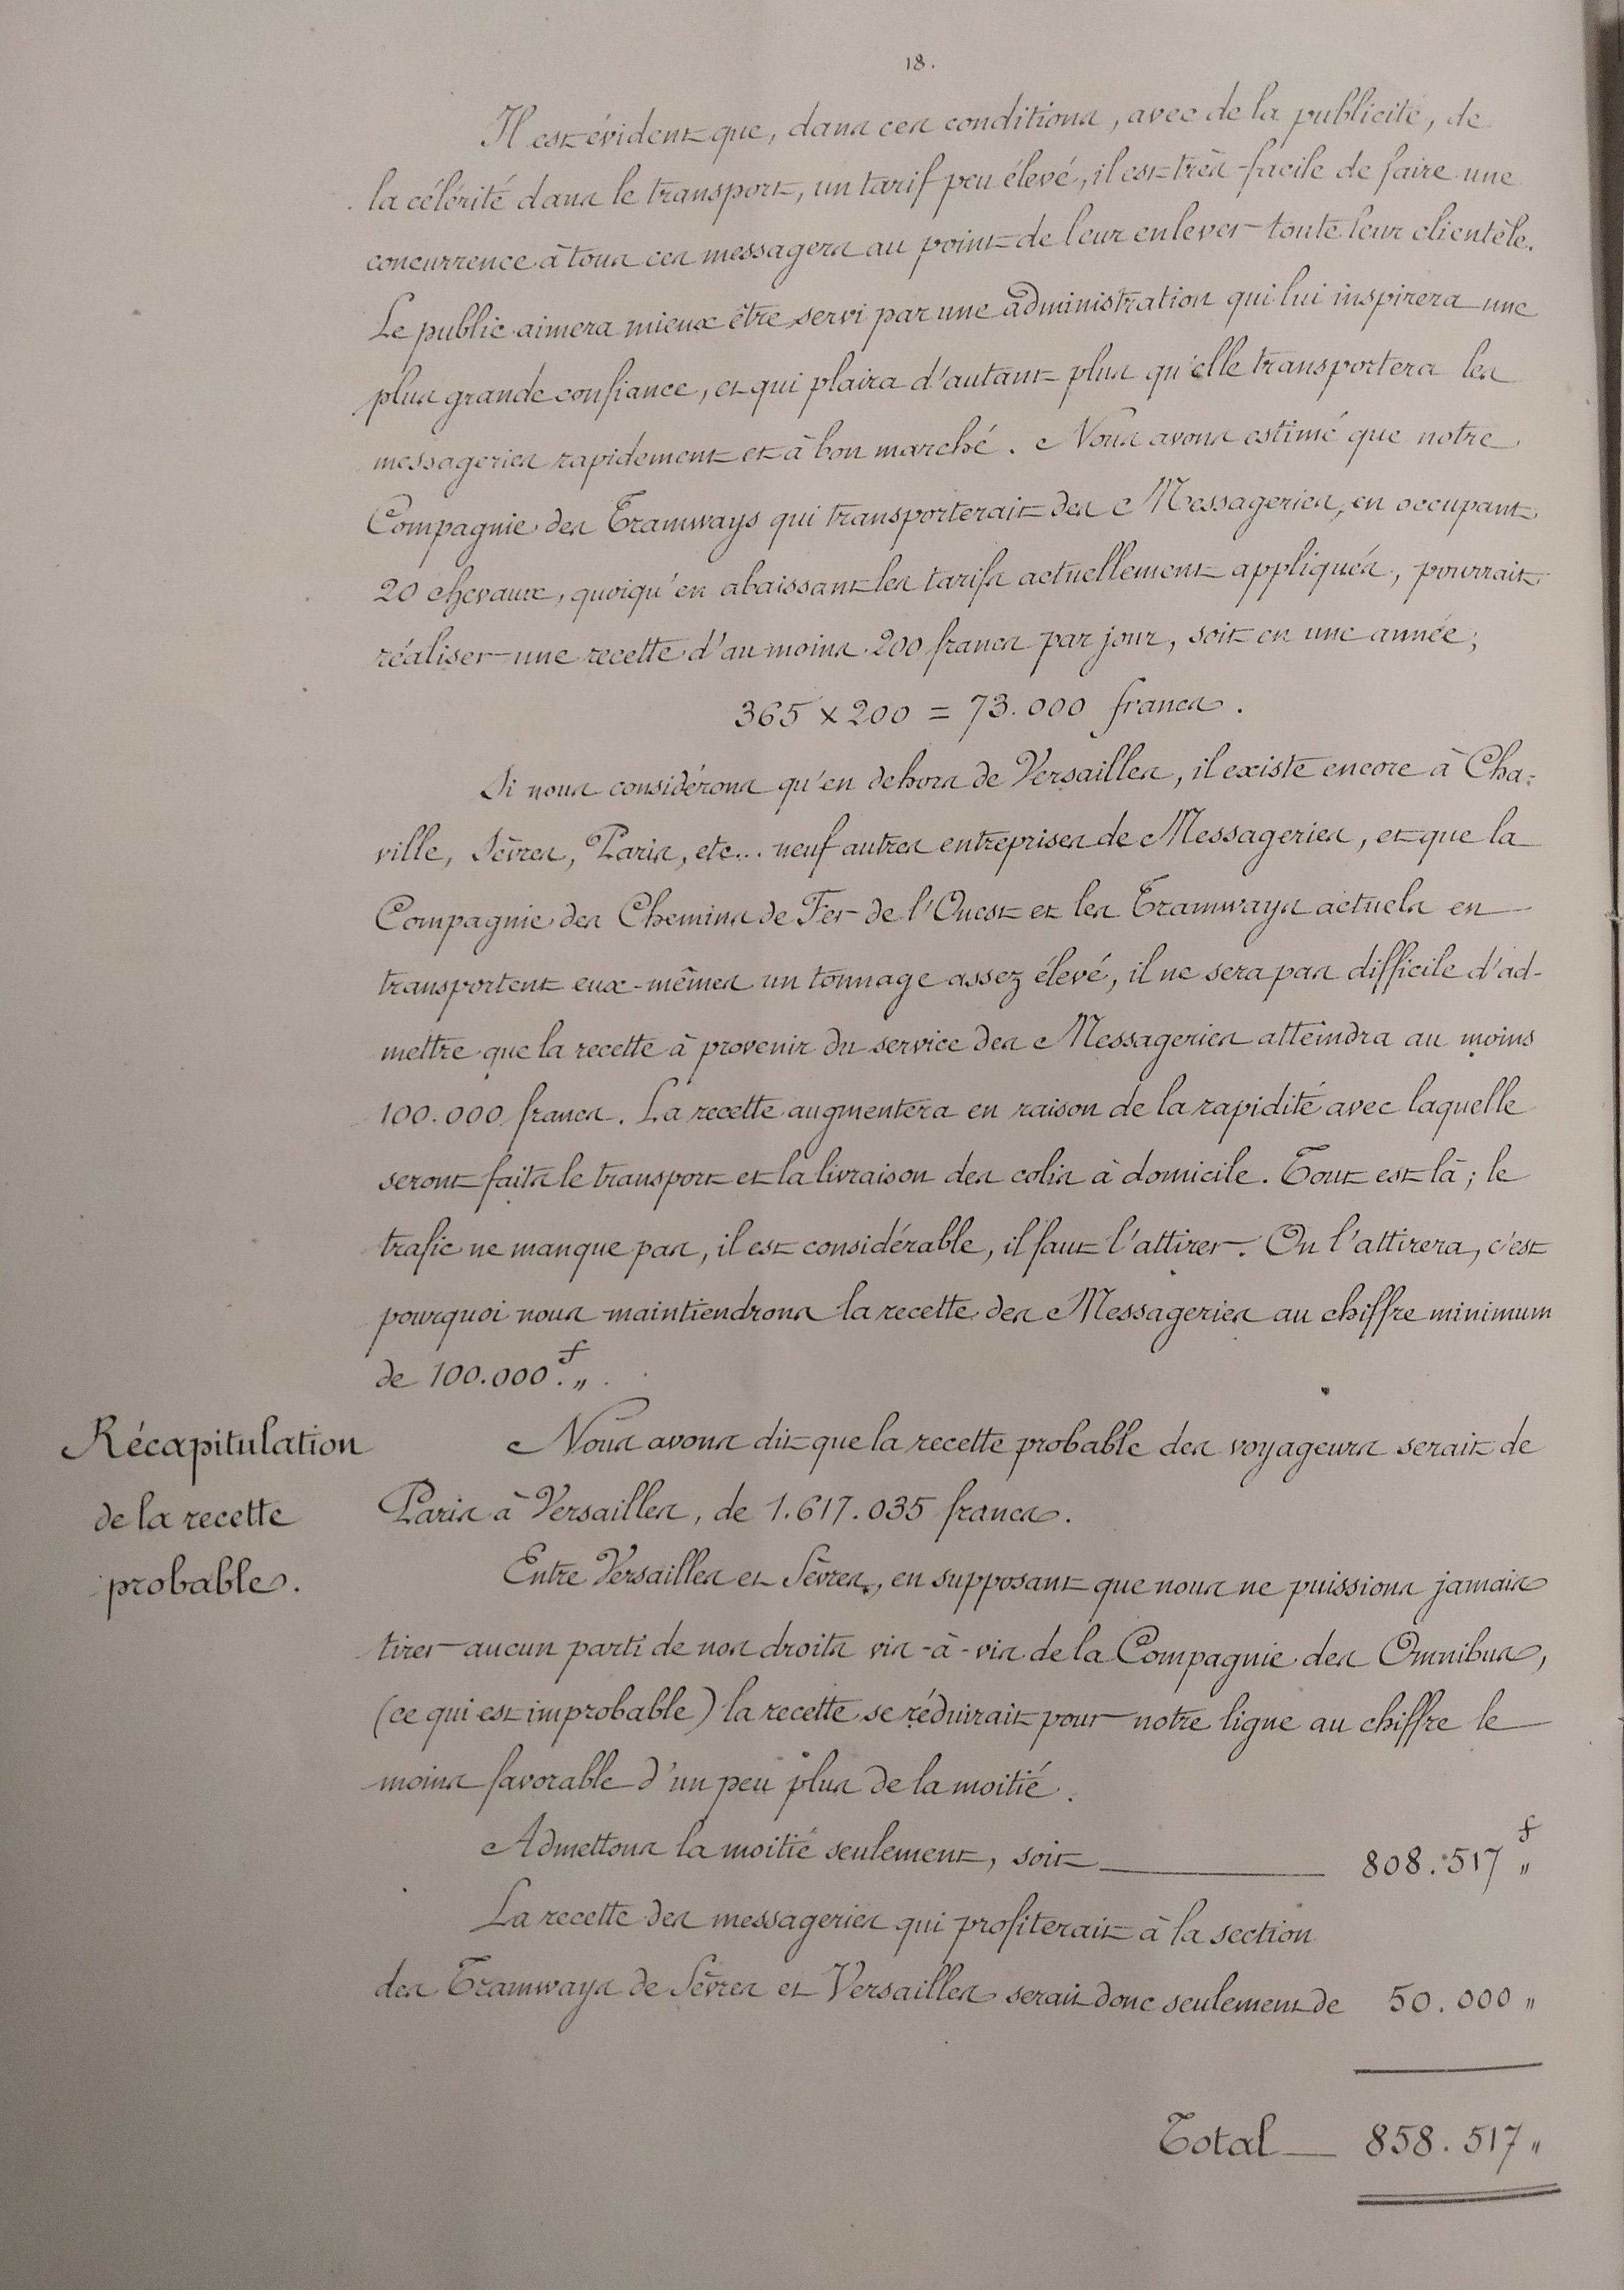 18.
Il est évident que, dans ces conditions, avec de la publicité, de
la célérité dans le transport, un tarif peu élevé, il est très facile de faire une
concurrence à tous ces messagers au point de leur enlever toute leur clientèle.
Le public aimera mieux être servi par une administration qui lui inspirera une
plus grande confiance, et qui plaira d'autant plus qu'elle transportera les
messageries rapidement et à bon marché. Nous avons estimé que notre
Compagnie des Tramways qui transporterait des Messageries, en occupant
20 chevaux, quoiqu'en abaissant les tarifs actuellement appliqués, pourrait
réaliser une recette d'au moins 200 francs par jour, soit en une année;
365 x 200 = 73.000 francs.
Si nous considérons qu'en dehors de Versailles, il existe encore à Cha-
ville, Sèvres, Paris, etc... neuf autres entreprises de Messageries, et que la
Compagnie des Chemins de Fer de l'Ouest et les Tramways actuels en
transportent eux-mêmes un tonnage assez élevé, il ne sera pas difficile d'ad-
mettre que la recette à provenir du service des Messageries atteindra au moins
100.000 francs. La recette augmentera en raison de la rapidité avec laquelle
seront faits le transport et la livraison des colis à domicile. Tout est là; le
trafic ne manque pas, il est considérable, il faut l'attirer. On l'attirera, c'est
pourquoi nous maintiendrons la recette des Messageries au chiffre minimum
de 100.000 f. „.
Récapitulation
de la recette
probable.
Nous avons dit que la recette probable des voyageurs serait de
Paris à Versailles, de 1.617.035 francs.
Entre Versailles et Sèvres, en supposant que nous ne puissions jamais
tirer aucun parti de nos droits vis-à-vis de la Compagnie des Omnibus,
(ce qui est improbable) la recette se réduirait pour notre ligne au chiffre le
moins favorable d'un peu plus de la moitié.
Admettons la moitié seulement, soit 808.517 f „
La recette des messageries qui profiterait à la section
des Tramways de Sèvres et Versailles serait donc seulement de 50.000 „
Total 858.517 „